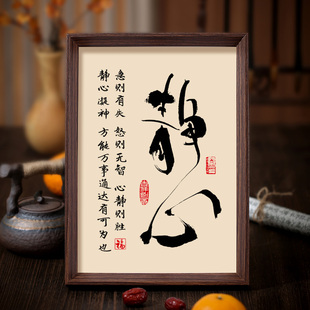 静心
急则有失 怒则无智 心静则胜
静心凝神 方能万事通达有可为也